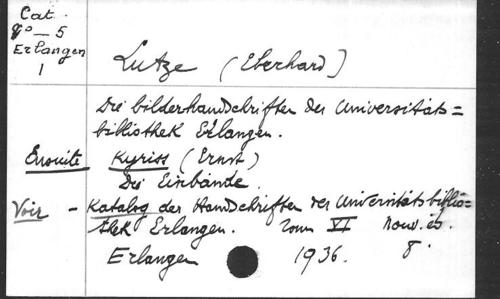 Cat.
8° — 5
Erlangen
1
Lutze (Eberhard)
Die Bilderhandschriften der Universitäts=
bibliothek Erlangen.
Ensuite Kyriss (Ernst)
Die Einbände.
Voir - Katalog der Handschriften der Universitätsbiblio=
thek Erlangen. Tom VI nouv. éd.
Erlangen 1936. 8°